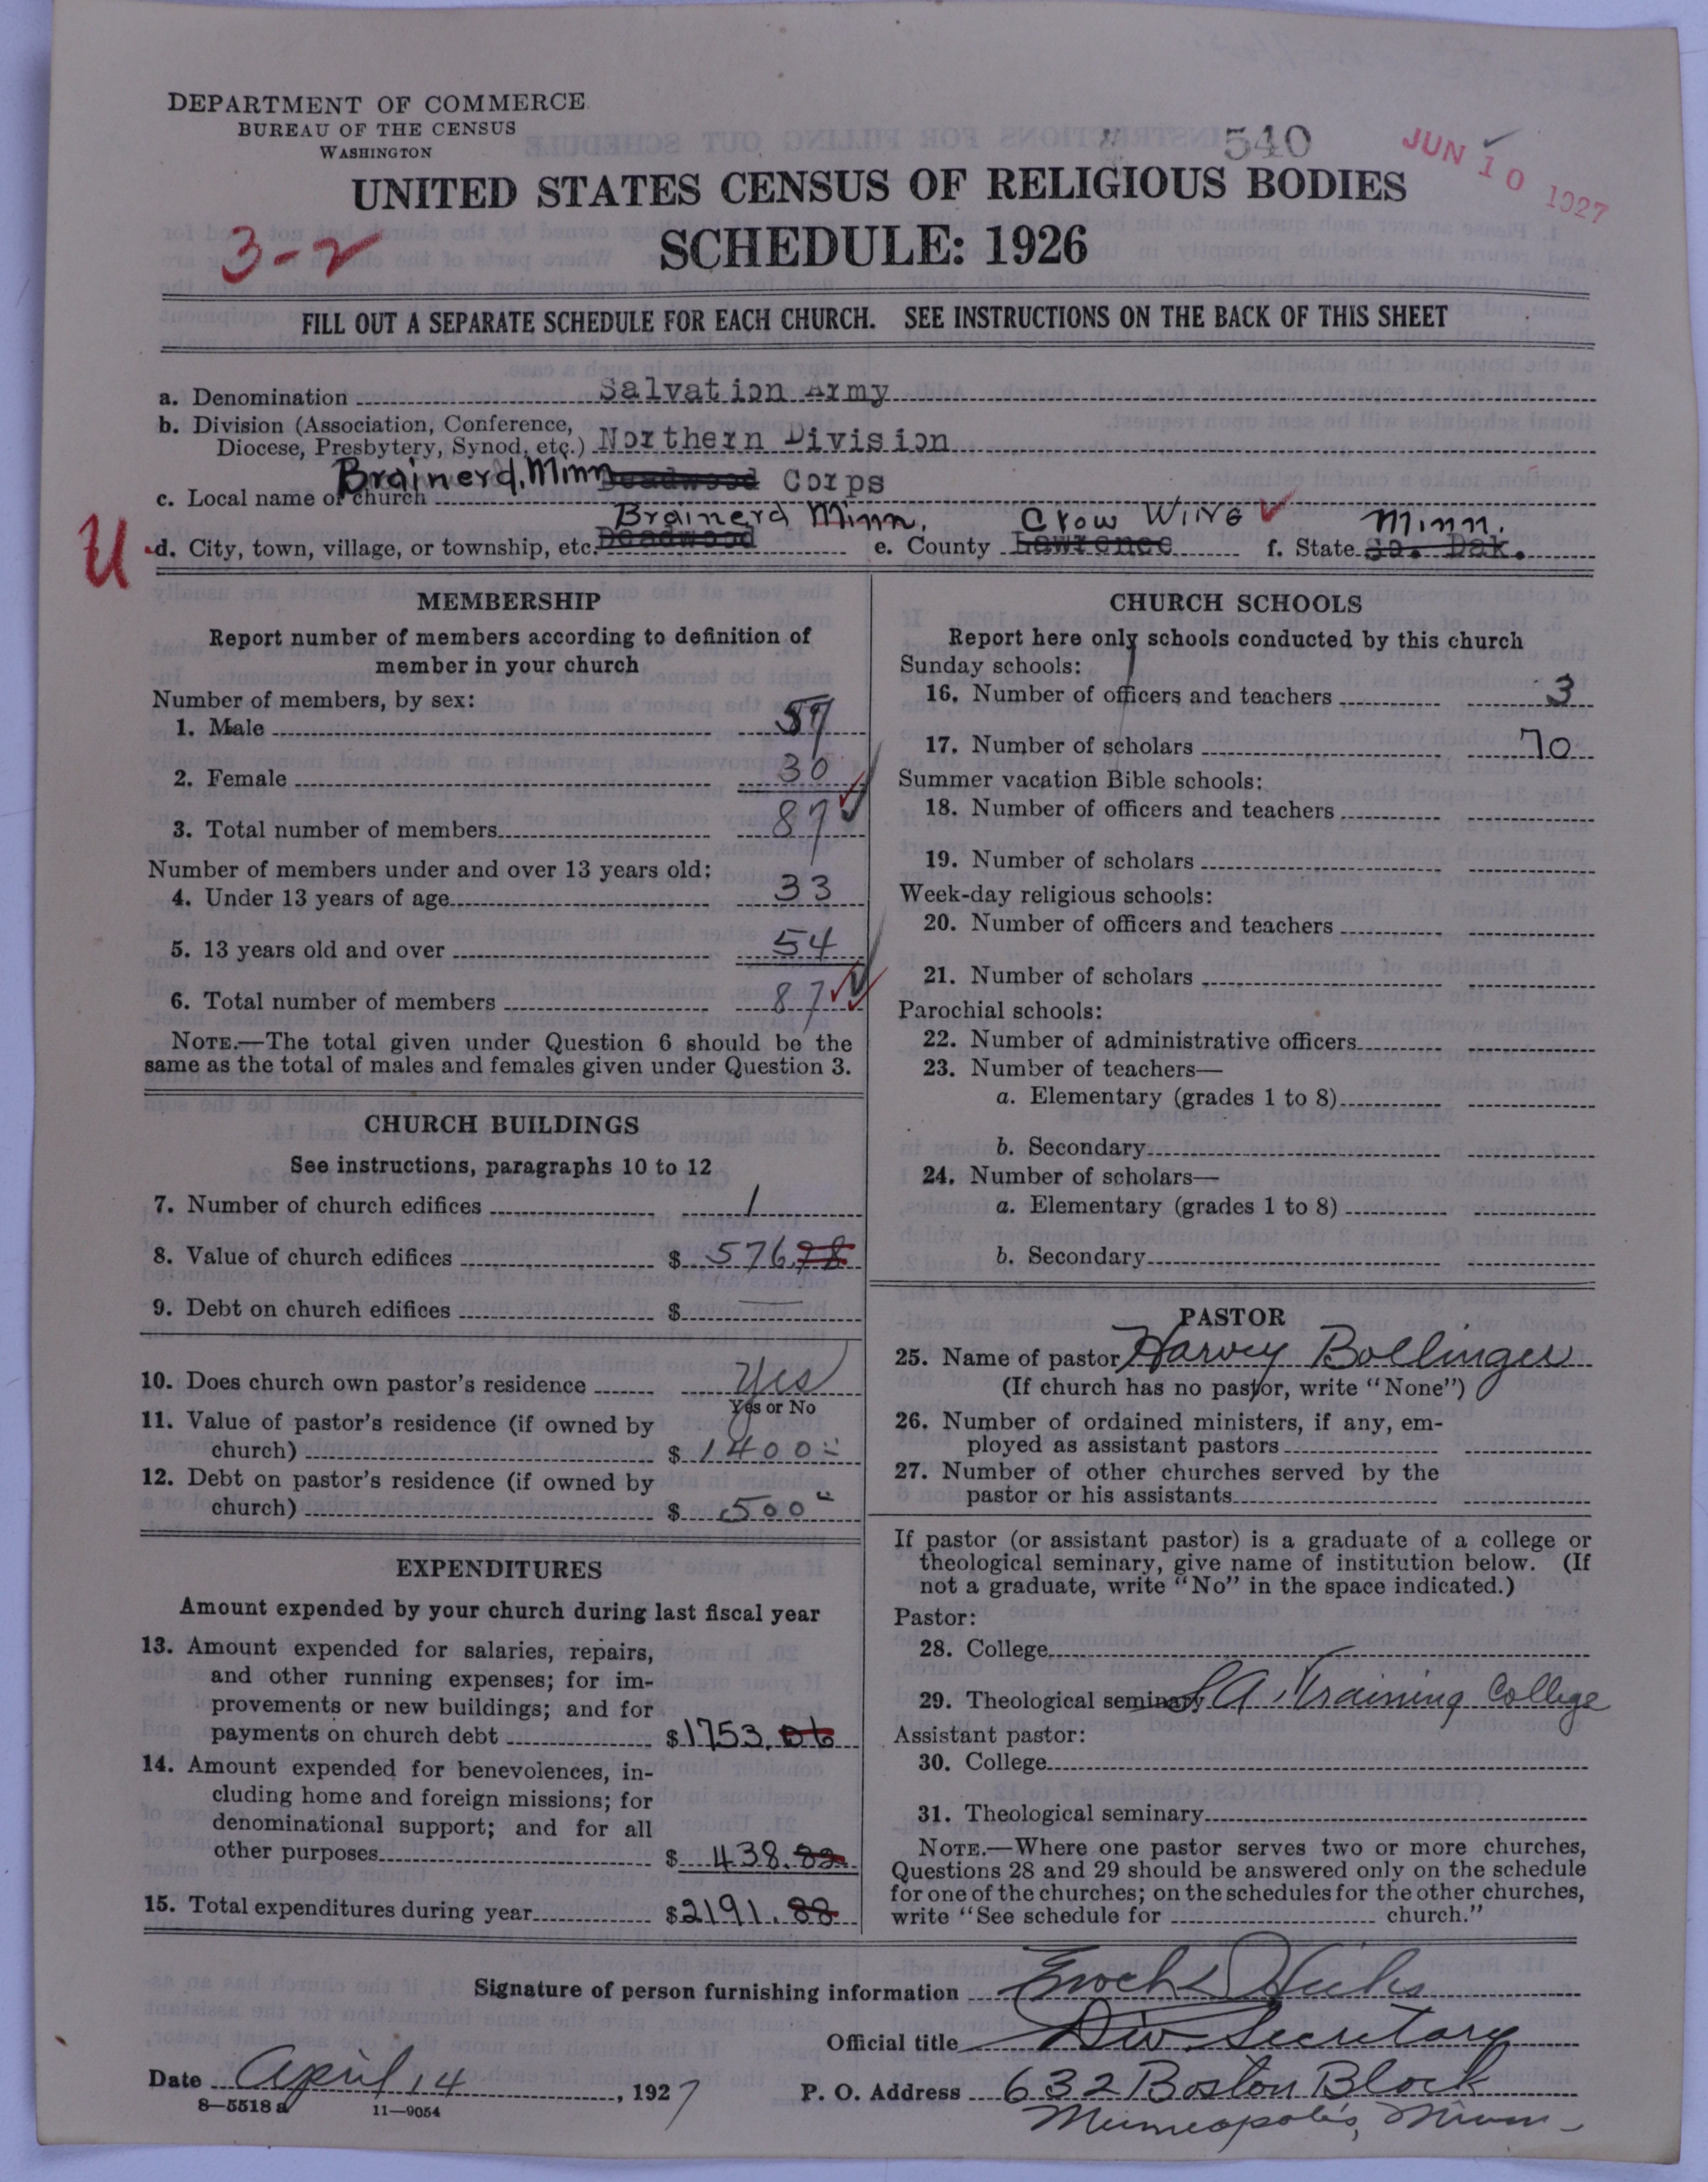 DEPARTMENT OF COMMERCE
BUREAU OF THE CENSUS
WASHINGTON
540
JUN 10 1927
UNITED STATES CENSUS OF RELIGIOUS BODIES
3-2
SCHEDULE: 1926
FILL OUT A SEPARATE SCHEDULE FOR EACH CHURCH. SEE INSTRUCTIONS ON THE BACK OF THIS SHEET
a. Denomination Salvation Army
b. Division (Association, Conference,
Diocese, Presbytery, Synod, etc.) Northern Division
c. Local name of church Brainerd, Minn Deadwood Corps
Brainerd Minn. Crow Wing Minn.
U d. City, town, village, or township, etc. Deadwood e. County Lawrence f. State So. Dak.
MEMBERSHIP
Report number of members according to definition of
member in your church
Number of members, by sex:
1. Male 57
2. Female 30
3. Total number of members 87
Number of members under and over 13 years old:
4. Under 13 years of age 33
5. 13 years old and over 54
6. Total number of members 87
NOTE.—The total given under Question 6 should be the
same as the total of males and females given under Question 3.
CHURCH BUILDINGS
See instructions, paragraphs 10 to 12
7. Number of church edifices 1
8. Value of church edifices $ 576.
9. Debt on church edifices $ —
10. Does church own pastor's residence Yes
Yes or No
11. Value of pastor's residence (if owned by
church) $ 1400
12. Debt on pastor's residence (if owned by
church) $ 500
EXPENDITURES
Amount expended by your church during last fiscal year
13. Amount expended for salaries, repairs,
and other running expenses; for im-
provements or new buildings; and for
payments on church debt $ 1753.06
14. Amount expended for benevolences, in-
cluding home and foreign missions; for
denominational support; and for all
other purposes $ 438.82
15. Total expenditures during year $ 2191.88
CHURCH SCHOOLS
Report here only schools conducted by this church
Sunday schools:
16. Number of officers and teachers 3
17. Number of scholars 70
Summer vacation Bible schools:
18. Number of officers and teachers
19. Number of scholars
Week-day religious schools:
20. Number of officers and teachers
21. Number of scholars
Parochial schools:
22. Number of administrative officers
23. Number of teachers—
a. Elementary (grades 1 to 8)
b. Secondary
24. Number of scholars—
a. Elementary (grades 1 to 8)
b. Secondary
PASTOR
25. Name of pastor Harvey Bollinger
(If church has no pastor, write "None")
26. Number of ordained ministers, if any, em-
ployed as assistant pastors
27. Number of other churches served by the
pastor or his assistants
If pastor (or assistant pastor) is a graduate of a college or
theological seminary, give name of institution below. (If
not a graduate, write "No" in the space indicated.)
Pastor:
28. College
29. Theological seminary S A Training College
Assistant pastor:
30. College
31. Theological seminary
NOTE.—Where one pastor serves two or more churches,
Questions 28 and 29 should be answered only on the schedule
for one of the churches; on the schedules for the other churches,
write "See schedule for church."
Signature of person furnishing information Enoch L Hicks
Official title Div. Secretary
Date April 14, 1927 P. O. Address 632 Boston Block
8—5518 a 11—9054 Minneapolis, Minn